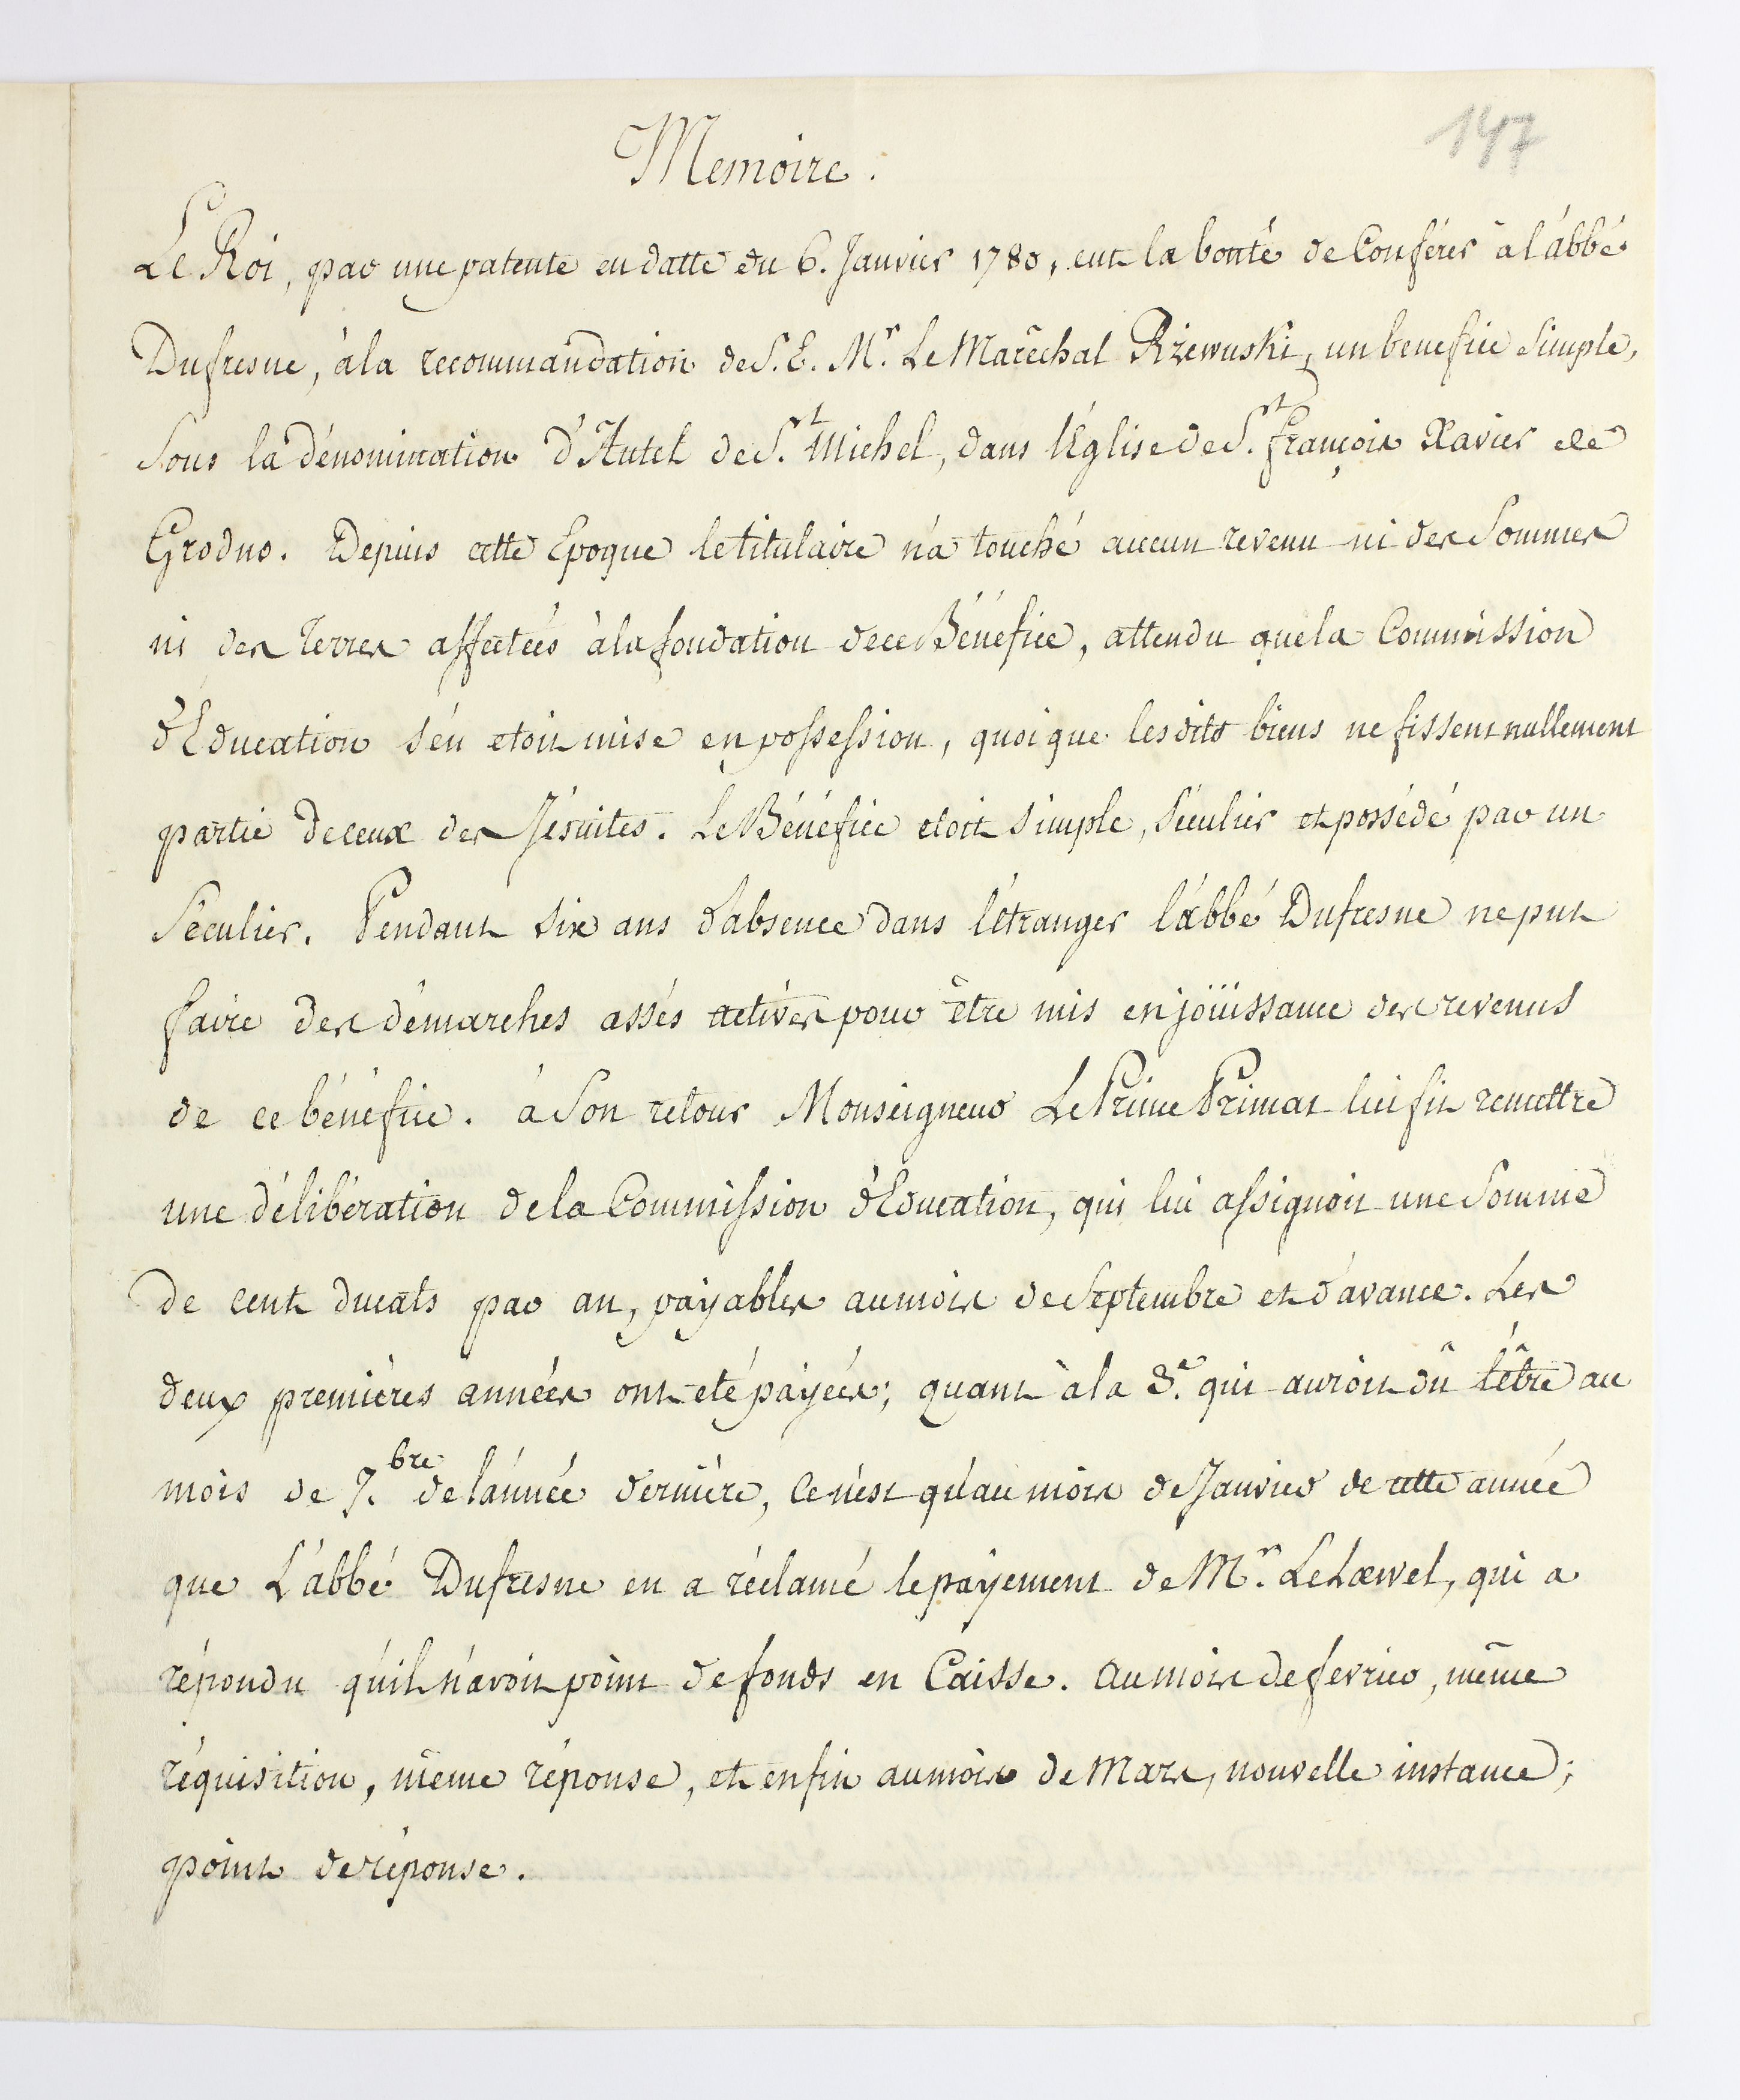 147
Memoire.
Le Roi, par une patente en datte du 6. Janvier 1780, eut la bonté de Conférer à l'abbé
Dufresne, à la recommandation de S. E. Mr. Le Maréchal Rzewuski, un benefice Simple,
Sous la dénomination d'Autel de St. Michel, dans l'Église de St. François Xavier de
Grodno. Depuis cette Epoque le titulaire n'a touché aucun revenu ni des Sommes
ni des Terres affectées à la fondation de ce Bénéfice, attendu que la Commission
d'Education s'en etoit mise en possession, quoique lesdits biens ne fissent nullement
partie de ceux des Jésuites. Le Bénéfice etoit Simple, Séculier et possédé par un
Séculier. Pendant Six ans d'absence dans l'étranger l'abbé Dufresne ne put
faire des démarches assés actives pour être mis en joüissance des revenus
de ce bénéfice. à Son retour Monseigneur Le Prince Primat lui fit remettre
une délibération de la Commission d'Education, qui lui assignoit une Somme
de cent ducats par an, payables au mois de Septembre et d'avance. Les
deux premières années ont eté payées; quant à la 3e. qui auroit dû l'être au
mois de 7.bre de l'année dernière, ce n'est qu'au mois de Janvier de cette année
que L'abbé Dufresne en a réclamé le payement de Mr. Lelœwel, qui a
répondu qu'il n'avoit point de fonds en Caisse. au mois de fevrier, même
réquisition, même réponse, et enfin au mois de Mars, nouvelle instance;
point de réponse.